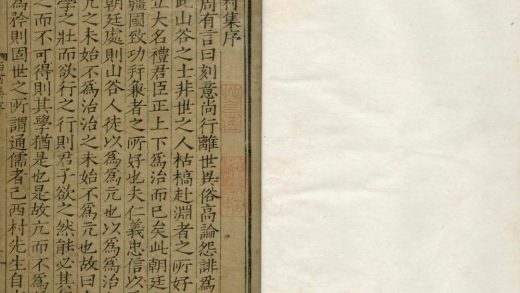 村集序
周有言曰刻意尚行離世異俗高論怨誹爲
此山谷之士非世之人枯槁赴淵者之所好
立大名禮君臣正上下爲治而已矣此朝廷
彊國致功并兼者之所好也夫仁義忠信以
朝廷處則山谷人徒以爲爲亢也以爲爲
亢之未始不爲治治之未始不爲亢也故曰
學之壯而欲行之行則君子欲之然能必其
之而不可得則其學猶是也是故亢而不爲
爲矜則固世之所謂通儒者已西村先生自